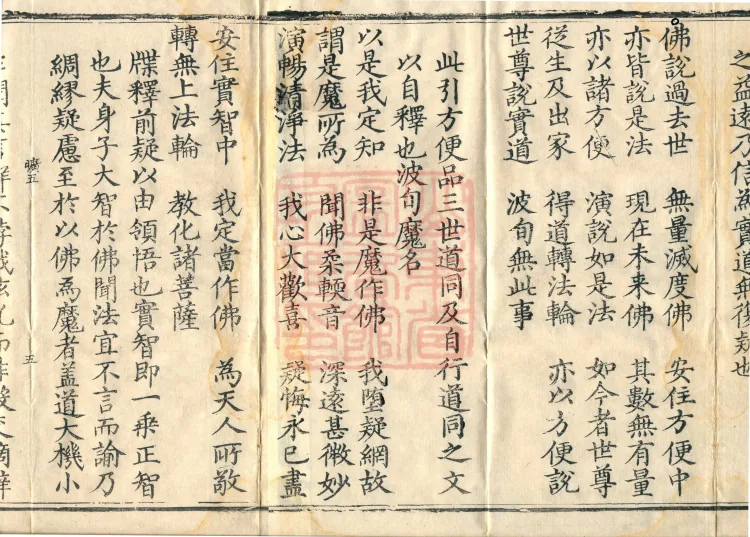 之益遠乃信為實道無復疑也
佛說過去世　無量滅度佛　安住方便中
亦皆說是法　現在未来佛　其數無有量
亦以諸方便　演說如是法　如今者世尊
從生及出家　得道轉法輪　亦以方便說
世尊說實道　波旬無此事
此引方便品三世道同及自行道同之文
以自釋也波旬魔名
以是我定知　非是魔作佛　我墮疑網故
謂是魔所為　聞佛柔輭音　深遠甚微妙
演暢清淨法　我心大歡喜　疑悔永已盡
安住實智中　我定當作佛　為天人所敬
轉無上法輪　教化諸菩薩
牒釋前疑以由領悟也實智即一乗正智
也夫身子大智於佛聞法宜不言而諭乃
綢繆疑慮至於以佛為魔者盖道大機小
曠五
五